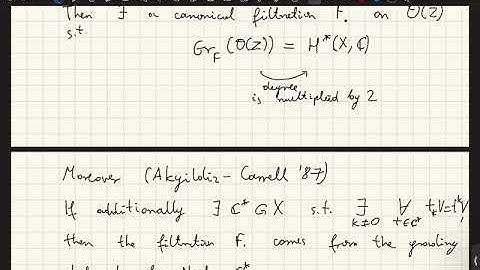 Then ∃ a canonical filtration F. on O(Z)
s.t.
Gr_F (O(Z)) = H*(X, ℂ)
degree
is multiplied by 2
Moreover (Akyildiz - Carrell '87)
If additionally ∃ ℂ* G X s.t. ∃ k≠0 ∀ t∈ℂ* t_* V = t^k V,
then the filtration F. comes from the grading